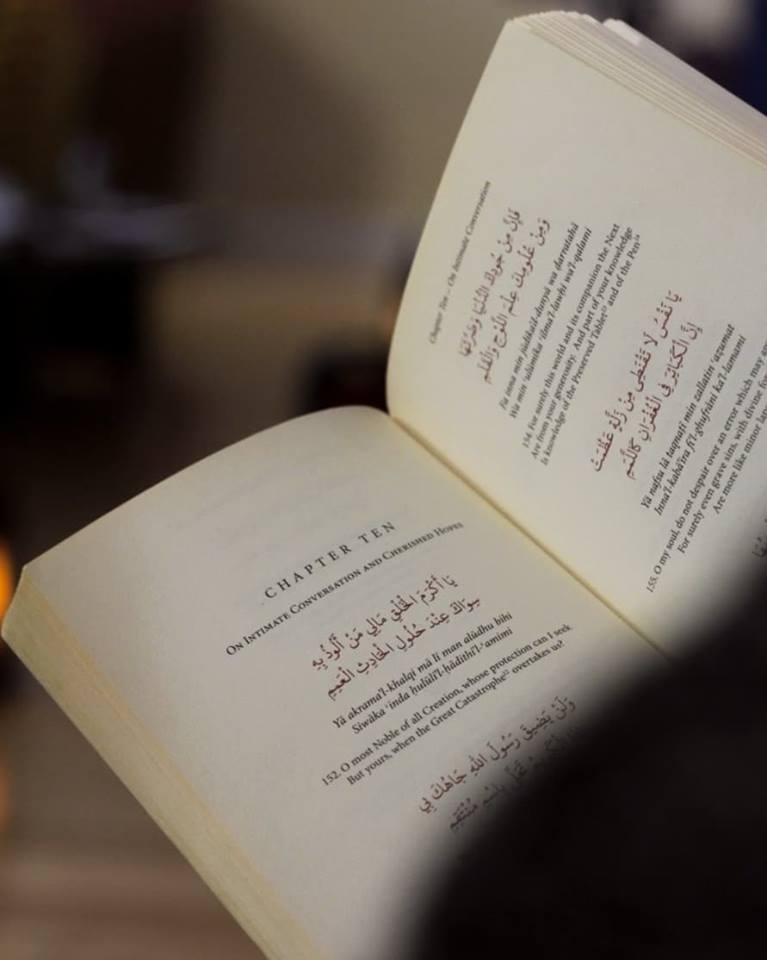 CHAPTER TEN
ON INTIMATE CONVERSATION AND CHERISHED HOPES
يَا أَكْرَمَ الْخَلْقِ مَالِي مَنْ أَلُوذُ بِهِ
سِوَاكَ عِنْدَ حُلُولِ الْحَادِثِ الْعَمِمِ
Yā akrama'l-khalqi mā lī man alūdhu bihi
Siwāka ʿinda ḥulūli'l-ḥādithi'l-ʿamimi
152. O most Noble of all Creation, whose protection can I seek
But yours, when the Great Catastrophe overtakes us?
وَلَنْ يَضِيقَ رَسُولَ اللهِ جَاهُكَ بِي
تَجَلَّى بِاسْمِ مُنْتَقِمِ
Chapter Ten – On Intimate Conversation
فَإِنَّ مِنْ جُودِكَ الدُّنْيَا وَضَرَّتَهَا
وَمِنْ عُلُومِكَ عِلْمَ اللَّوْحِ وَالْقَلَمِ
Fa inna min jūdika'd-dunyā wa ḍarratahā
Wa min ʿulūmika ʿilma'l-lawḥi wa'l-qalami
154. For surely this world and its companion the Next
Are from your generosity. And part of your knowledge
Is knowledge of the Preserved Tablet and of the Pen
يَا نَفْسُ لَا تَقْنَطِي مِنْ زَلَّةٍ عَظُمَتْ
إِنَّ الْكَبَائِرَ فِي الْغُفْرَانِ كَاللَّمَمِ
Yā nafsu lā taqnaṭī min zallatin ʿaẓumat
Inna'l-kabā'ira fi'l-ghufrāni ka'l-lamami
155. O my soul, do not despair over an error which may
For surely even grave sins, with divine
Are more like minor